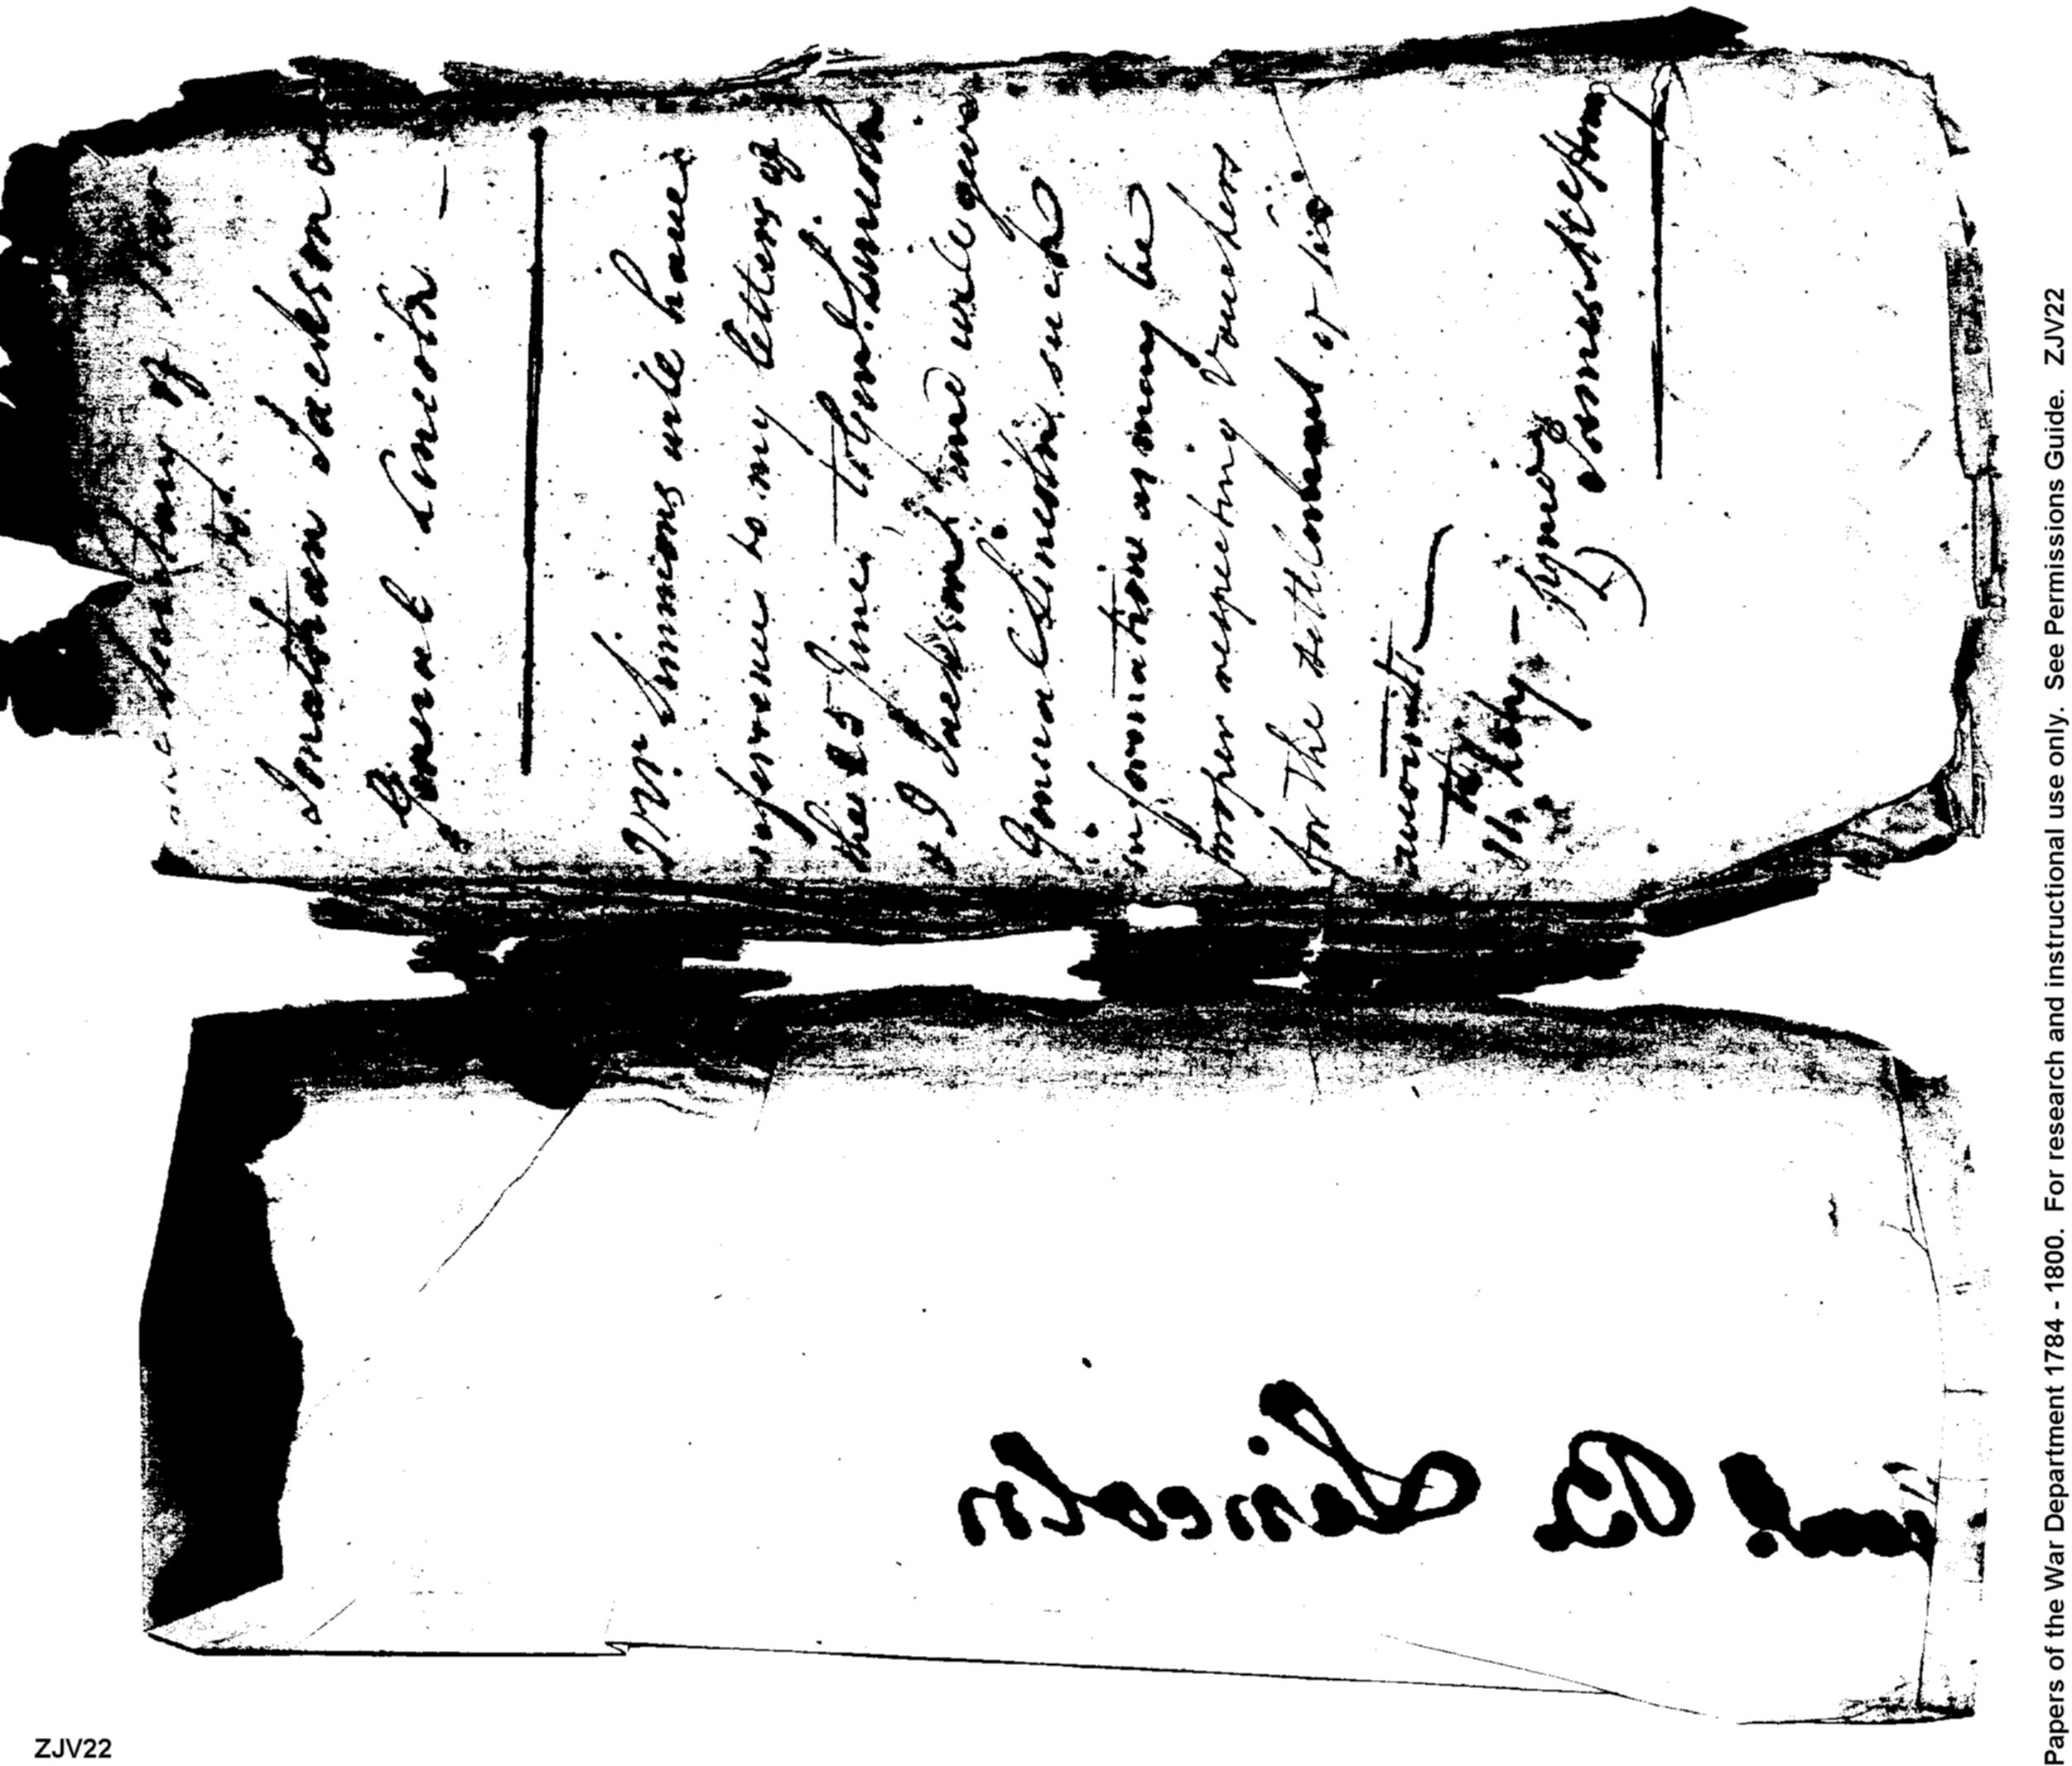 Secretary of War
to
Jonathan Jackson &
General Lincoln —
Mr. Simmons will have
reference to my letters of
the 25 June to Genl. Lincoln
& J Jackson, and will give
General Lincoln, such
information as may be
proper respecting Vouchers
for the settlement of his
accounts.
11 July — Signed
James McHenry
B Lincoln
ZJV22
Papers of the War Department 1784 - 1800. For research and instructional use only. See Permissions Guide. ZJV22